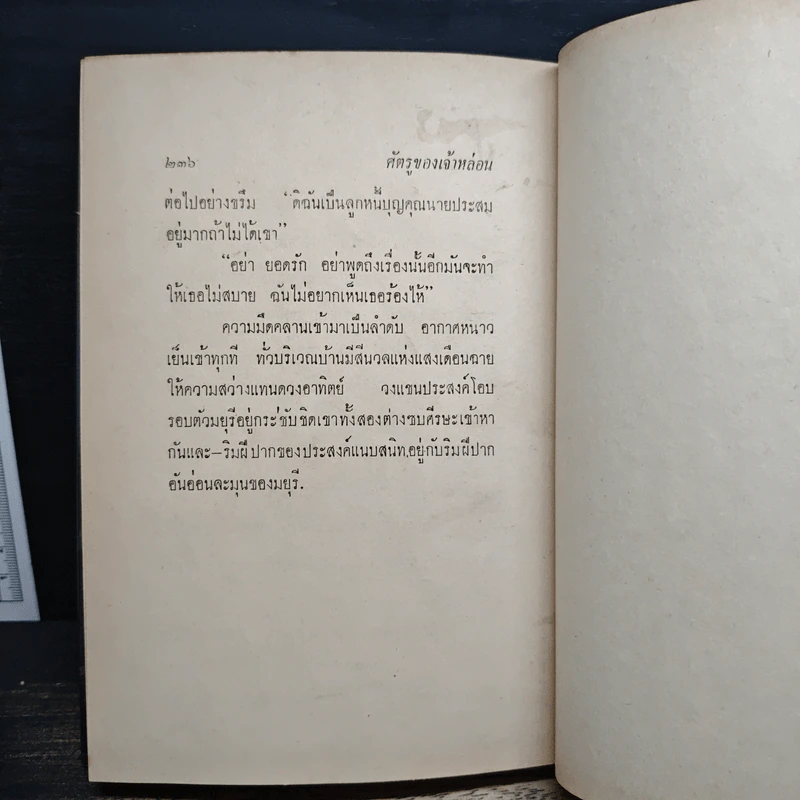 ๒๓๖ ศัตรูของเจ้าหล่อน
ต่อไปอย่างขรึม “ดิฉันเป็นลูกหนี้บุญคุณนายประสม
อยู่มากถ้าไม่ได้เขา”
“อย่า ยอดรัก อย่าพูดถึงเรื่องนั้นอีกมันจะทำ
ให้เธอไม่สบาย ฉันไม่อยากเห็นเธอร้องไห้”
ความมืดคลานเข้ามาเป็นลำดับ อากาศหนาว
เย็นเข้าทุกที ทั่วบริเวณบ้านมีสีนวลแห่งแสงเดือนฉาย
ให้ความสว่างแทนดวงอาทิตย์ วงแขนประสงค์โอบ
รอบตัวมยุรีอยู่กระชับชิดเขาทั้งสองต่างซบศีรษะเข้าหา
กันและ—ริมฝีปากของประสงค์แนบสนิทอยู่กับริมฝีปาก
อันอ่อนละมุนของมยุรี.